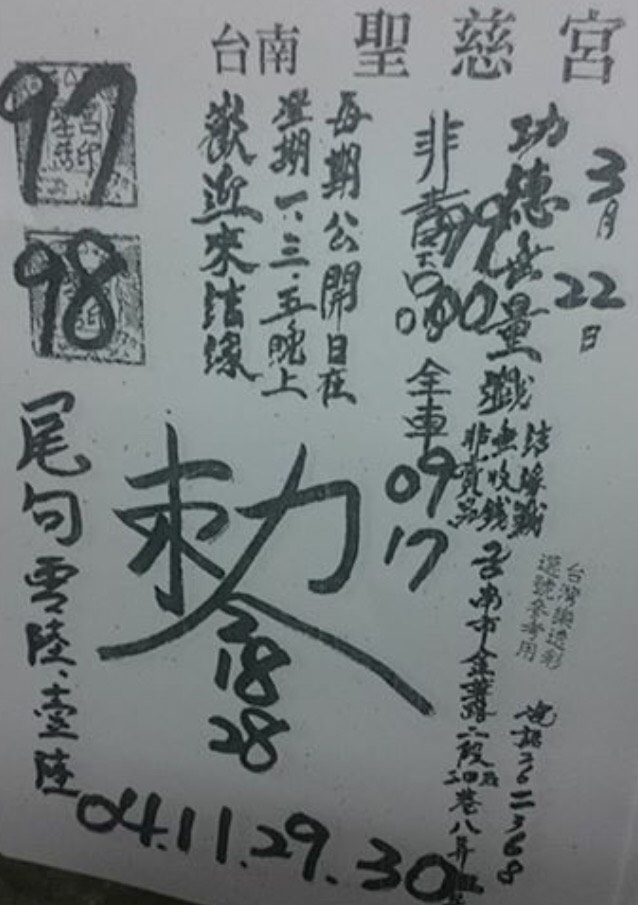 台南 聖慈宮
3月22日
功德無量籤
結緣籤
無收錢
非賣品
非賣品
99
00
全車
09
17
每期公開日在
星期一、三、五晚上
歡迎來結緣
97
98
敕
18
28
尾句零陸、壹陸
04.11.29.30
台灣
選號參考用
台南市金華路二段